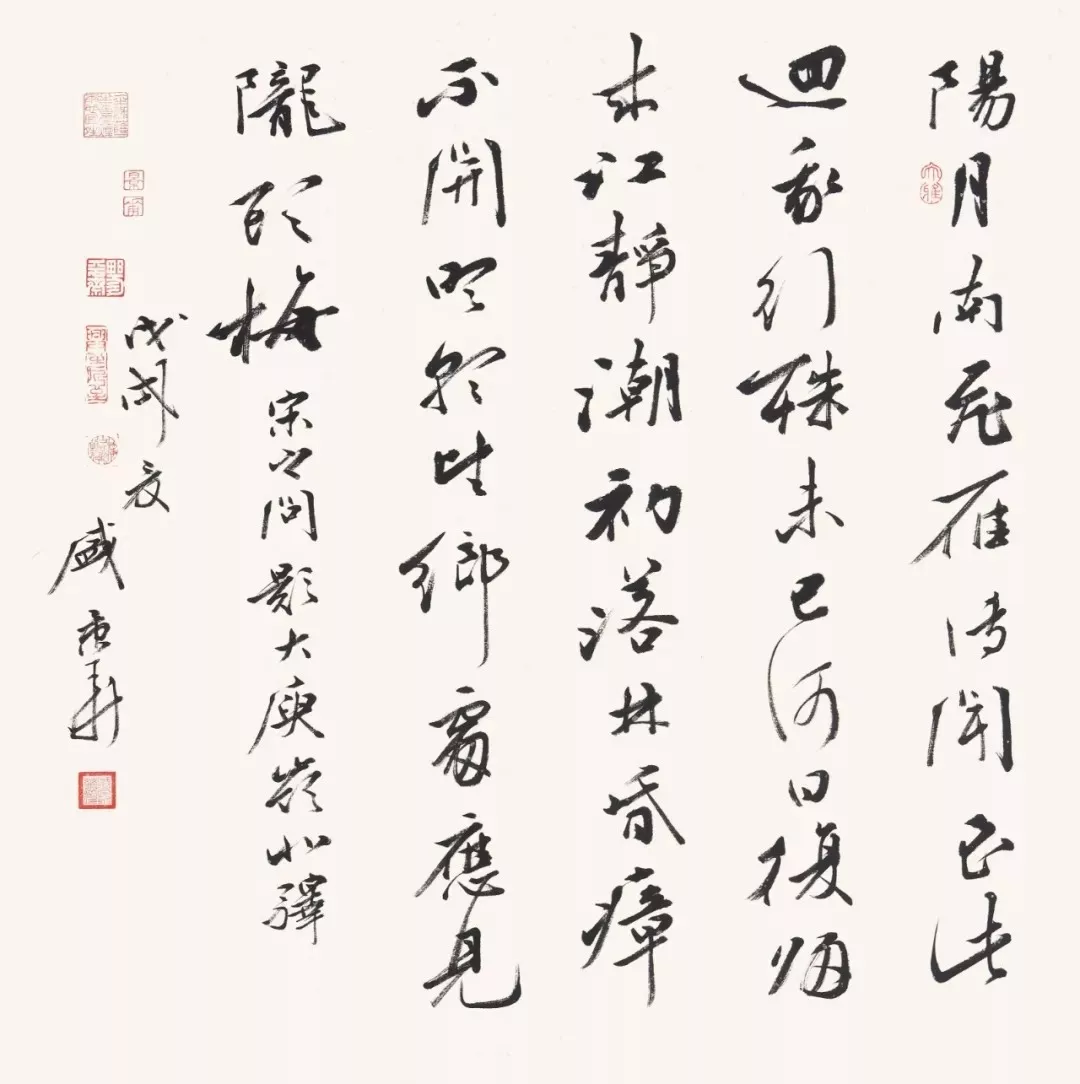 陽月南飛雁傳聞至此
迴我行殊未已何日復歸
来江靜潮初落林昏瘴
不開明朝望鄉處應見
隴頭梅 宋之問題大庾嶺北驛
戊戌夏
盛